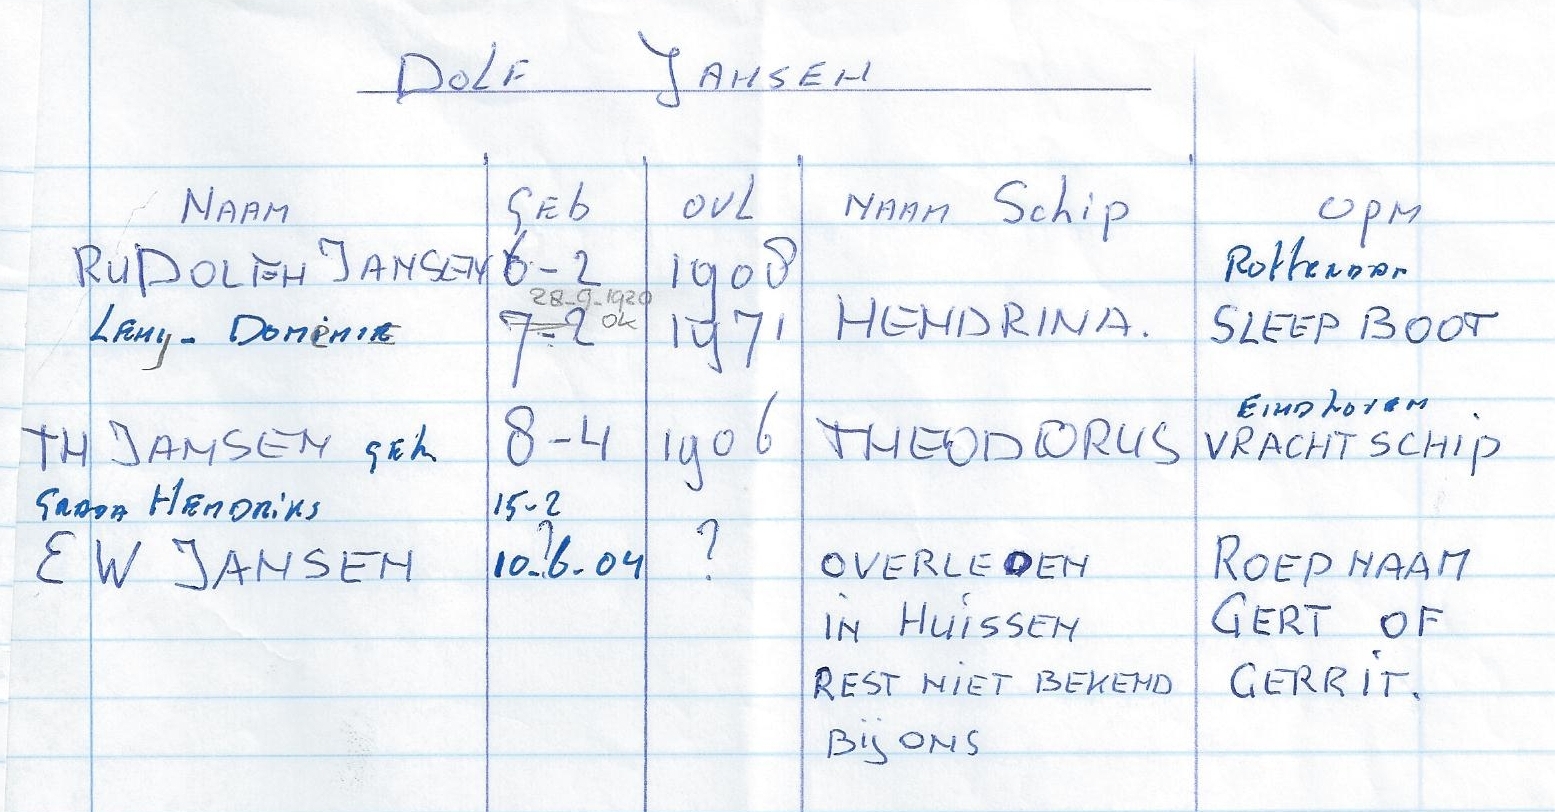 DOLF JANSEN
NAAM GEB OVL NAAM Schip OPM
RUDOLFH JANSEN 6-2 1908 Rotterdam
28-9-1920
Leny - Dominie 7-2 OK 1971 HENDRINA. SLEEP BOOT
Eindhoven
TH JANSEN geh 8-4 1906 THEODORUS VRACHT SCHIP
Grada Hendriks 15-2
E W JANSEN 10-6-04 ? OVERLEDEN ROEPNAAM
IN HUISSEN GERT OF
REST NIET BEKEND GERRIT.
Bij ONS